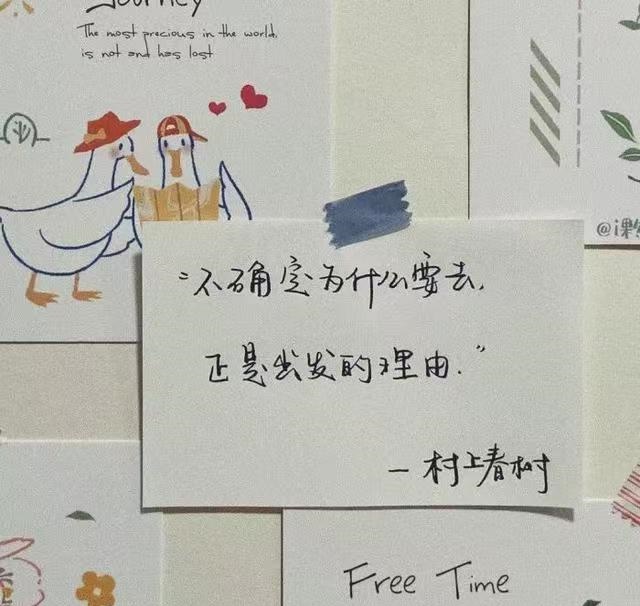 Journey
The most precious in the world,
is not and has lost
@i
“不确定为什么要去,
正是出发的理由.”
— 村上春树
Free Time